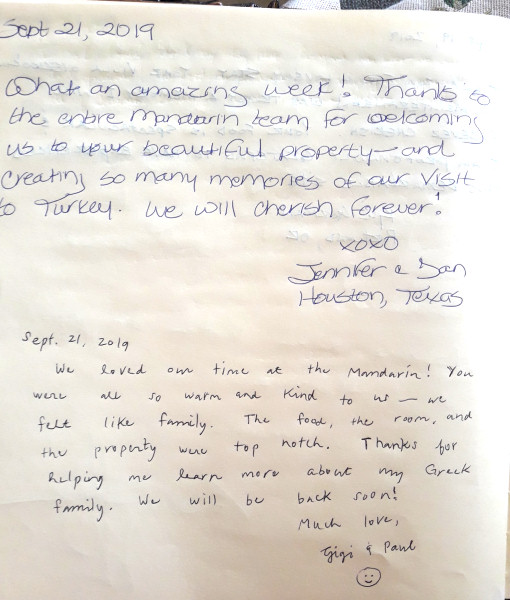 Sept 21, 2019
What an amazing week! Thanks to
the entire Mandarin team for welcoming
us to your beautiful property—and
creating so many memories of our visit
to Turkey. We will cherish forever!
xoxo
Jennifer & Dan
Houston, Texas
Sept. 21, 2019
We loved our time at the Mandarin! You
were all so warm and kind to us — we
felt like family. The food, the room, and
the property were top notch. Thanks for
helping me learn more about my Greek
family. We will be back soon!
Much love,
Gigi & Paul